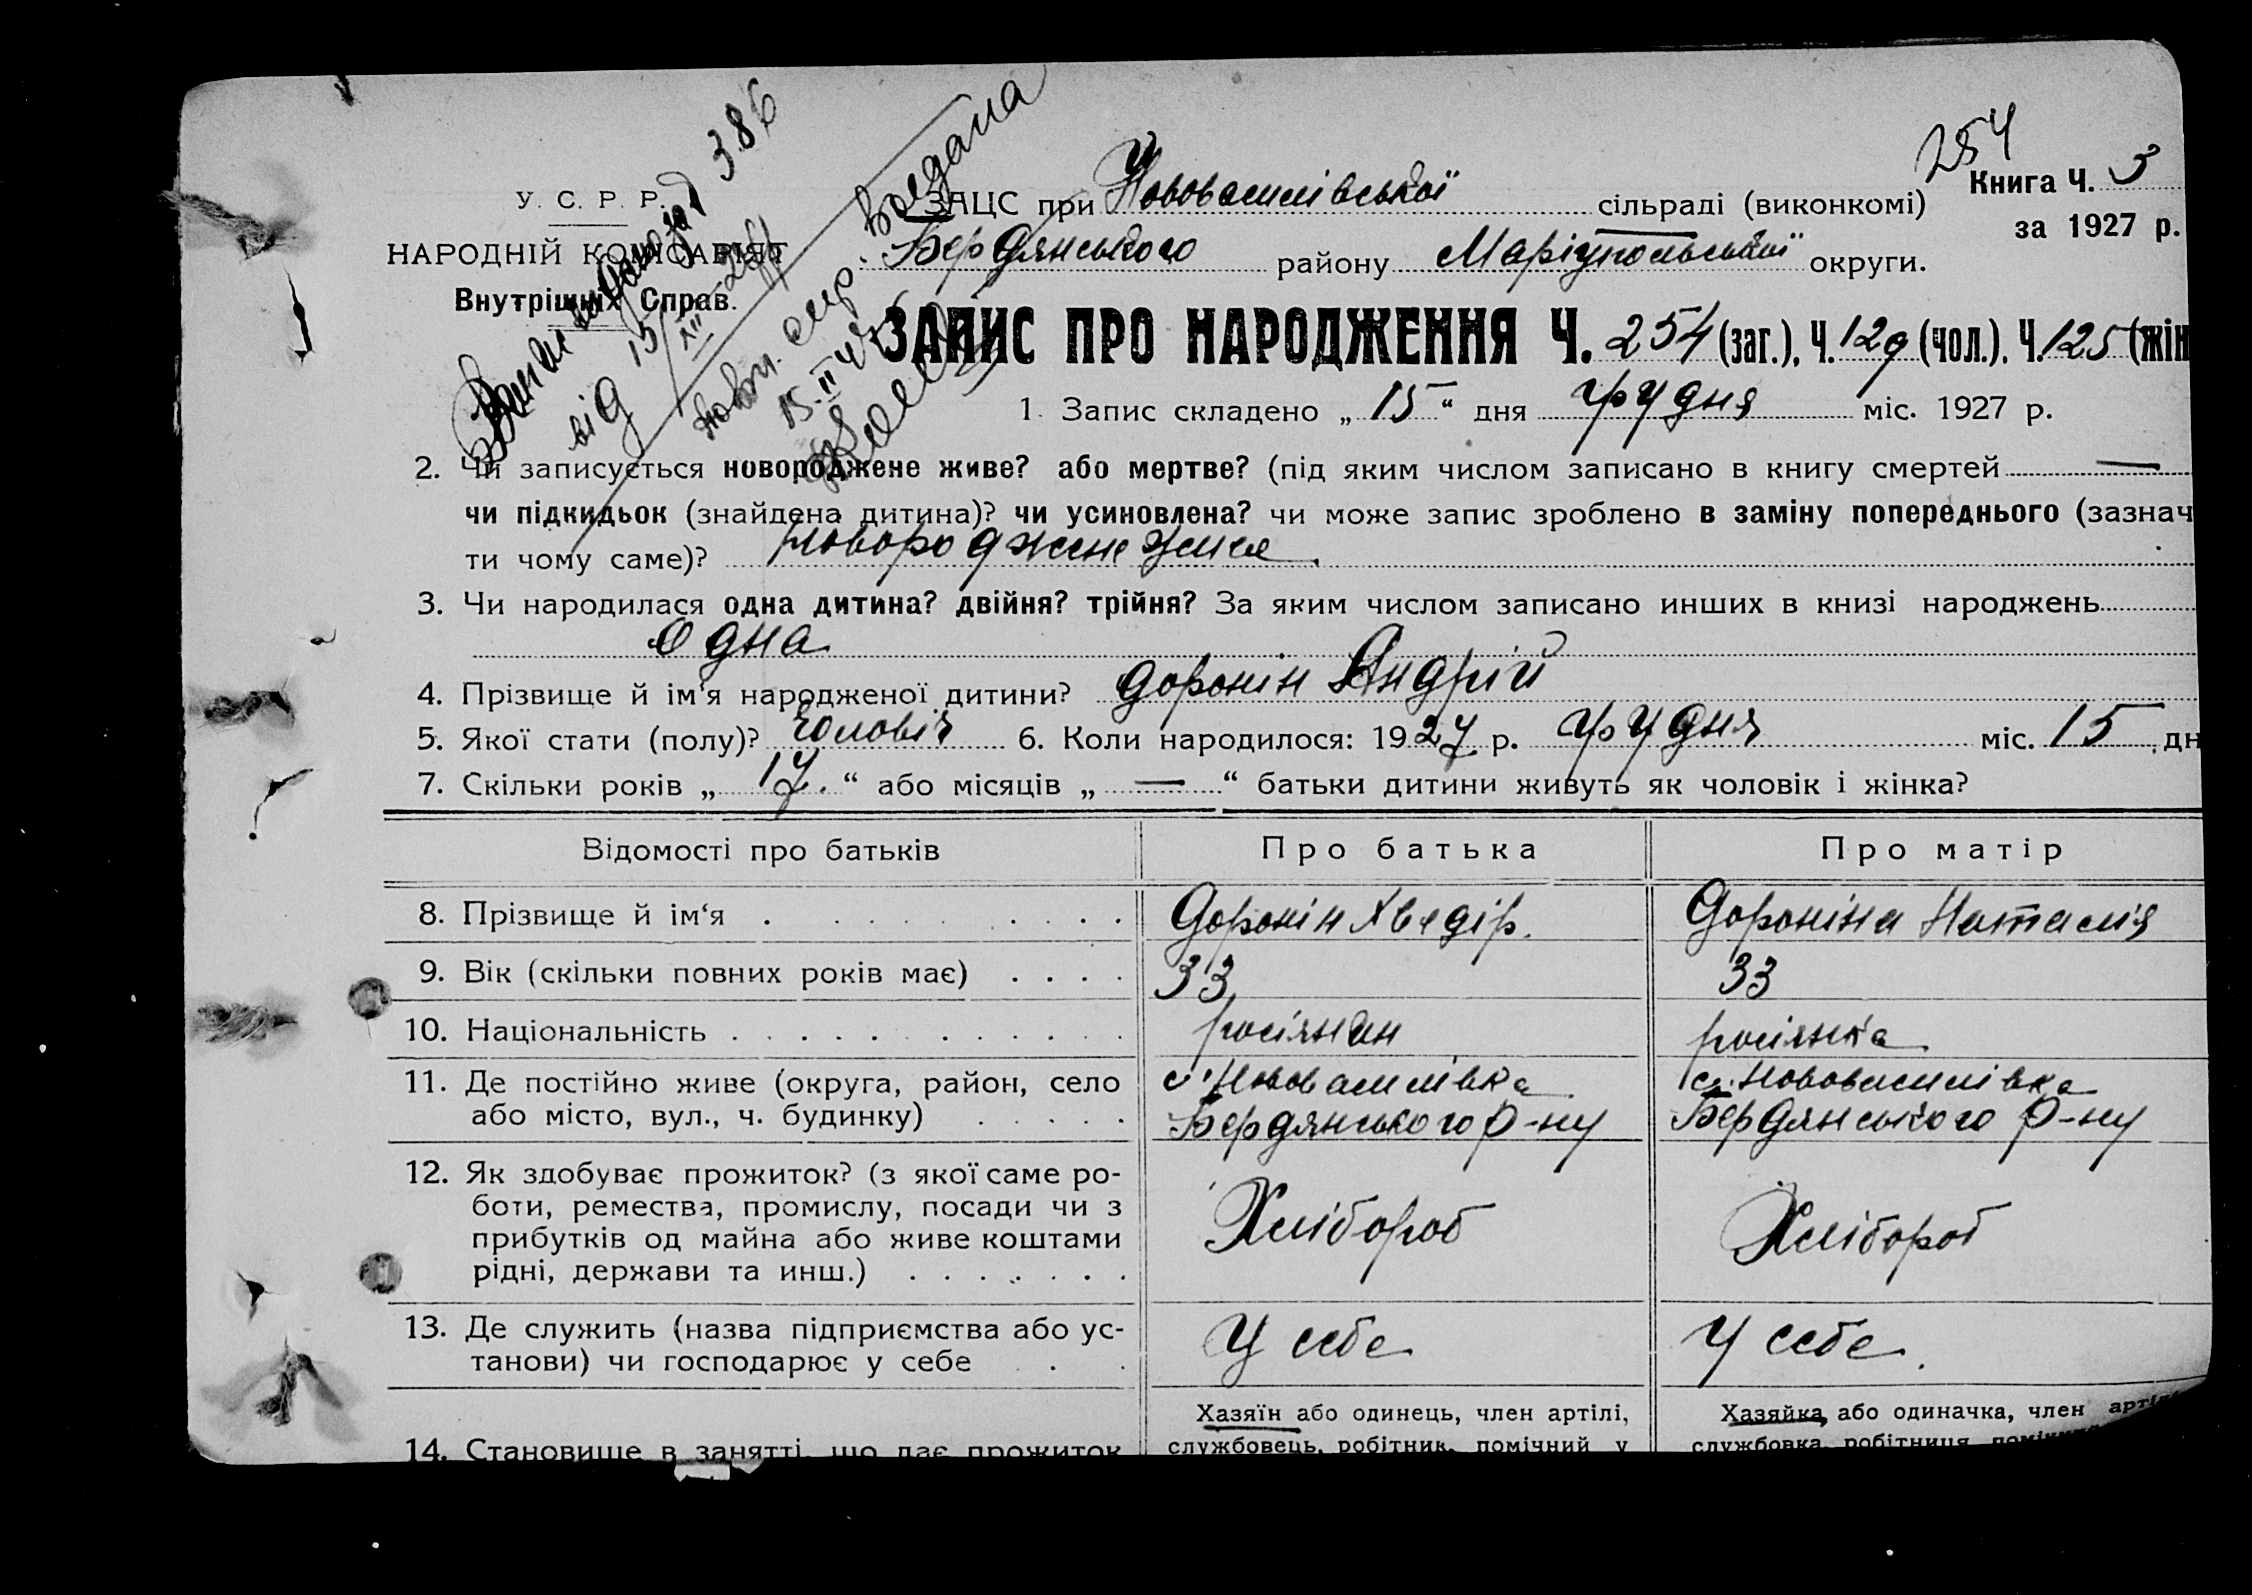 254
У. С. Р. Р.
НАРОДНІЙ КОМІСАРІЯТ
Внутрішніх Справ.
386
від 15/XII
15.II
ЗАЦС при Нововасилівської сільраді (виконкомі)
Книга Ч. 3
за 1927 р.
Бердянського району Маріупольської округи.
ЗАПИС ПРО НАРОДЖЕННЯ Ч. 254 (заг.), Ч. 129 (чол.). Ч. 125 (жін
1. Запис складено „ 15 “ дня грудня міс. 1927 р.
2. Чи записується новороджене живе? або мертве? (під яким числом записано в книгу смертей —
чи підкидьок (знайдена дитина)? чи усиновлена? чи може запис зроблено в заміну попереднього (зазнач
ти чому саме)? новороджене живе
3. Чи народилася одна дитина? двійня? трійня? За яким числом записано инших в книзі народжень
одна
4. Прізвище й ім‘я народженої дитини? Доронін Андрій
5. Якої стати (полу)? чоловіч 6. Коли народилося: 1927 р. грудня міс. 15 дн
7. Скільки років „ 17. “ або місяців „ — “ батьки дитини живуть як чоловік і жінка?
Відомості про батьків Про батька Про матір
8. Прізвище й ім‘я Доронін Хведір. Дороніна Наталія
9. Вік (скільки повних років має) 33 33
10. Національність росіянин росіянка
11. Де постійно живе (округа, район, село с. Нововасилівка с. Нововасилівка
або місто, вул., ч. будинку) Бердянського р-ну Бердянського р-ну
12. Як здобуває прожиток? (з якої саме ро-
боти, ремества, промислу, посади чи з Хлібороб Хлібороб
прибутків од майна або живе коштами
рідні, держави та инш.)
13. Де служить (назва підприємства або ус- У себе У себе.
танови) чи господарює у себе
Хазяїн або одинець, член артілі, Хазяйка, або одиначка, член артілі
14. Становище в занятті, що дає прожиток службовець, робітник, помічний у службовка, робітниця